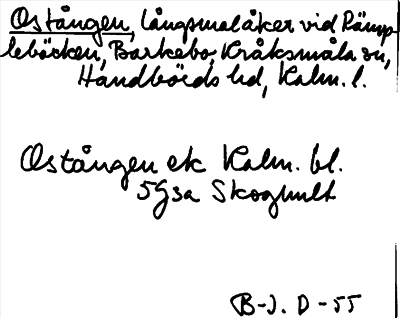 Ostången, långsmal åker vid Rämp-
lebäcken, Barkebo, Kråksmåla sn,
Handbörds hd, Kalm. l.
Ostången ek Kalm. bl.
5G3a Skoghult
B-J. D-55